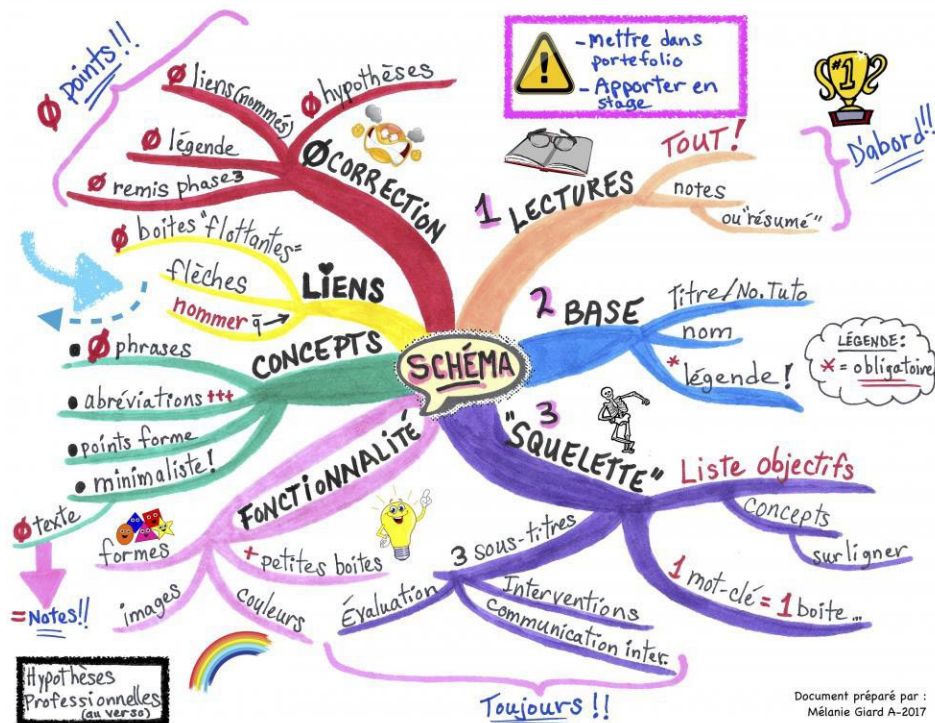 SCHÉMA
- Mettre dans
portefolio
- Apporter en
stage
#1
D'abord!!
1 LECTURES
TOUT!
notes
ou "résumé"
2 BASE
Titre/No.Tuto
nom
* légende!
LÉGENDE:
* = obligatoire
3
"SQUELETTE"
Liste objectifs
Concepts
surligner
1 mot-clé = 1 boite...
3 sous-titres
Évaluation
Interventions
communication inter.
Toujours!!
FONCTIONNALITÉ
+ petites boites
couleurs
images
formes
CONCEPTS
• Ø phrases
• abréviations +++
• points forme
• minimaliste!
Ø texte
= Notes!!
LIENS
Ø boites "flottantes"
flèches
nommer q̄ →
Ø CORRECTION
Ø hypothèses
Ø liens (nommés)
Ø légende
Ø remis phase 3
Ø points!!
Hypothèses
Professionnelles
(au verso)
Document préparé par :
Mélanie Giard A-2017